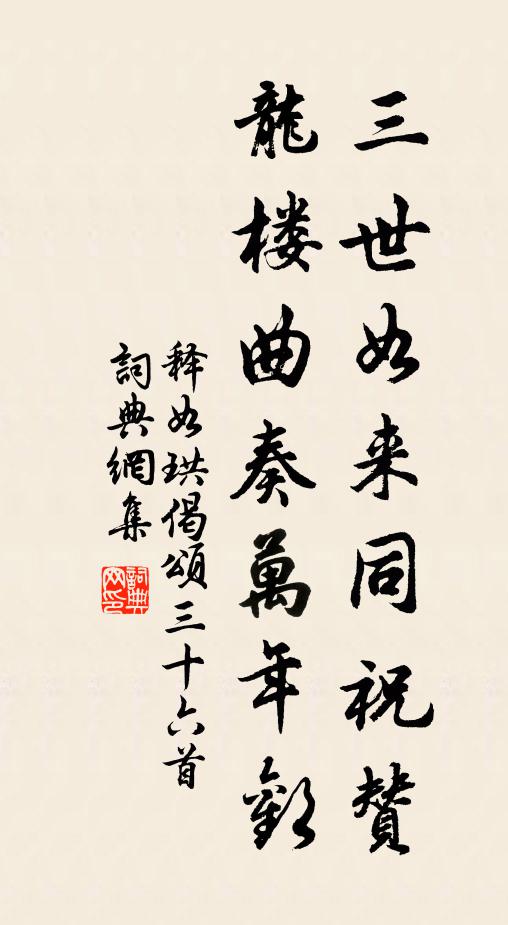 三世如来同祝贊
龍楼曲奏萬年歡
释如珙偈頌三十六首
詞典網集
詞典網印